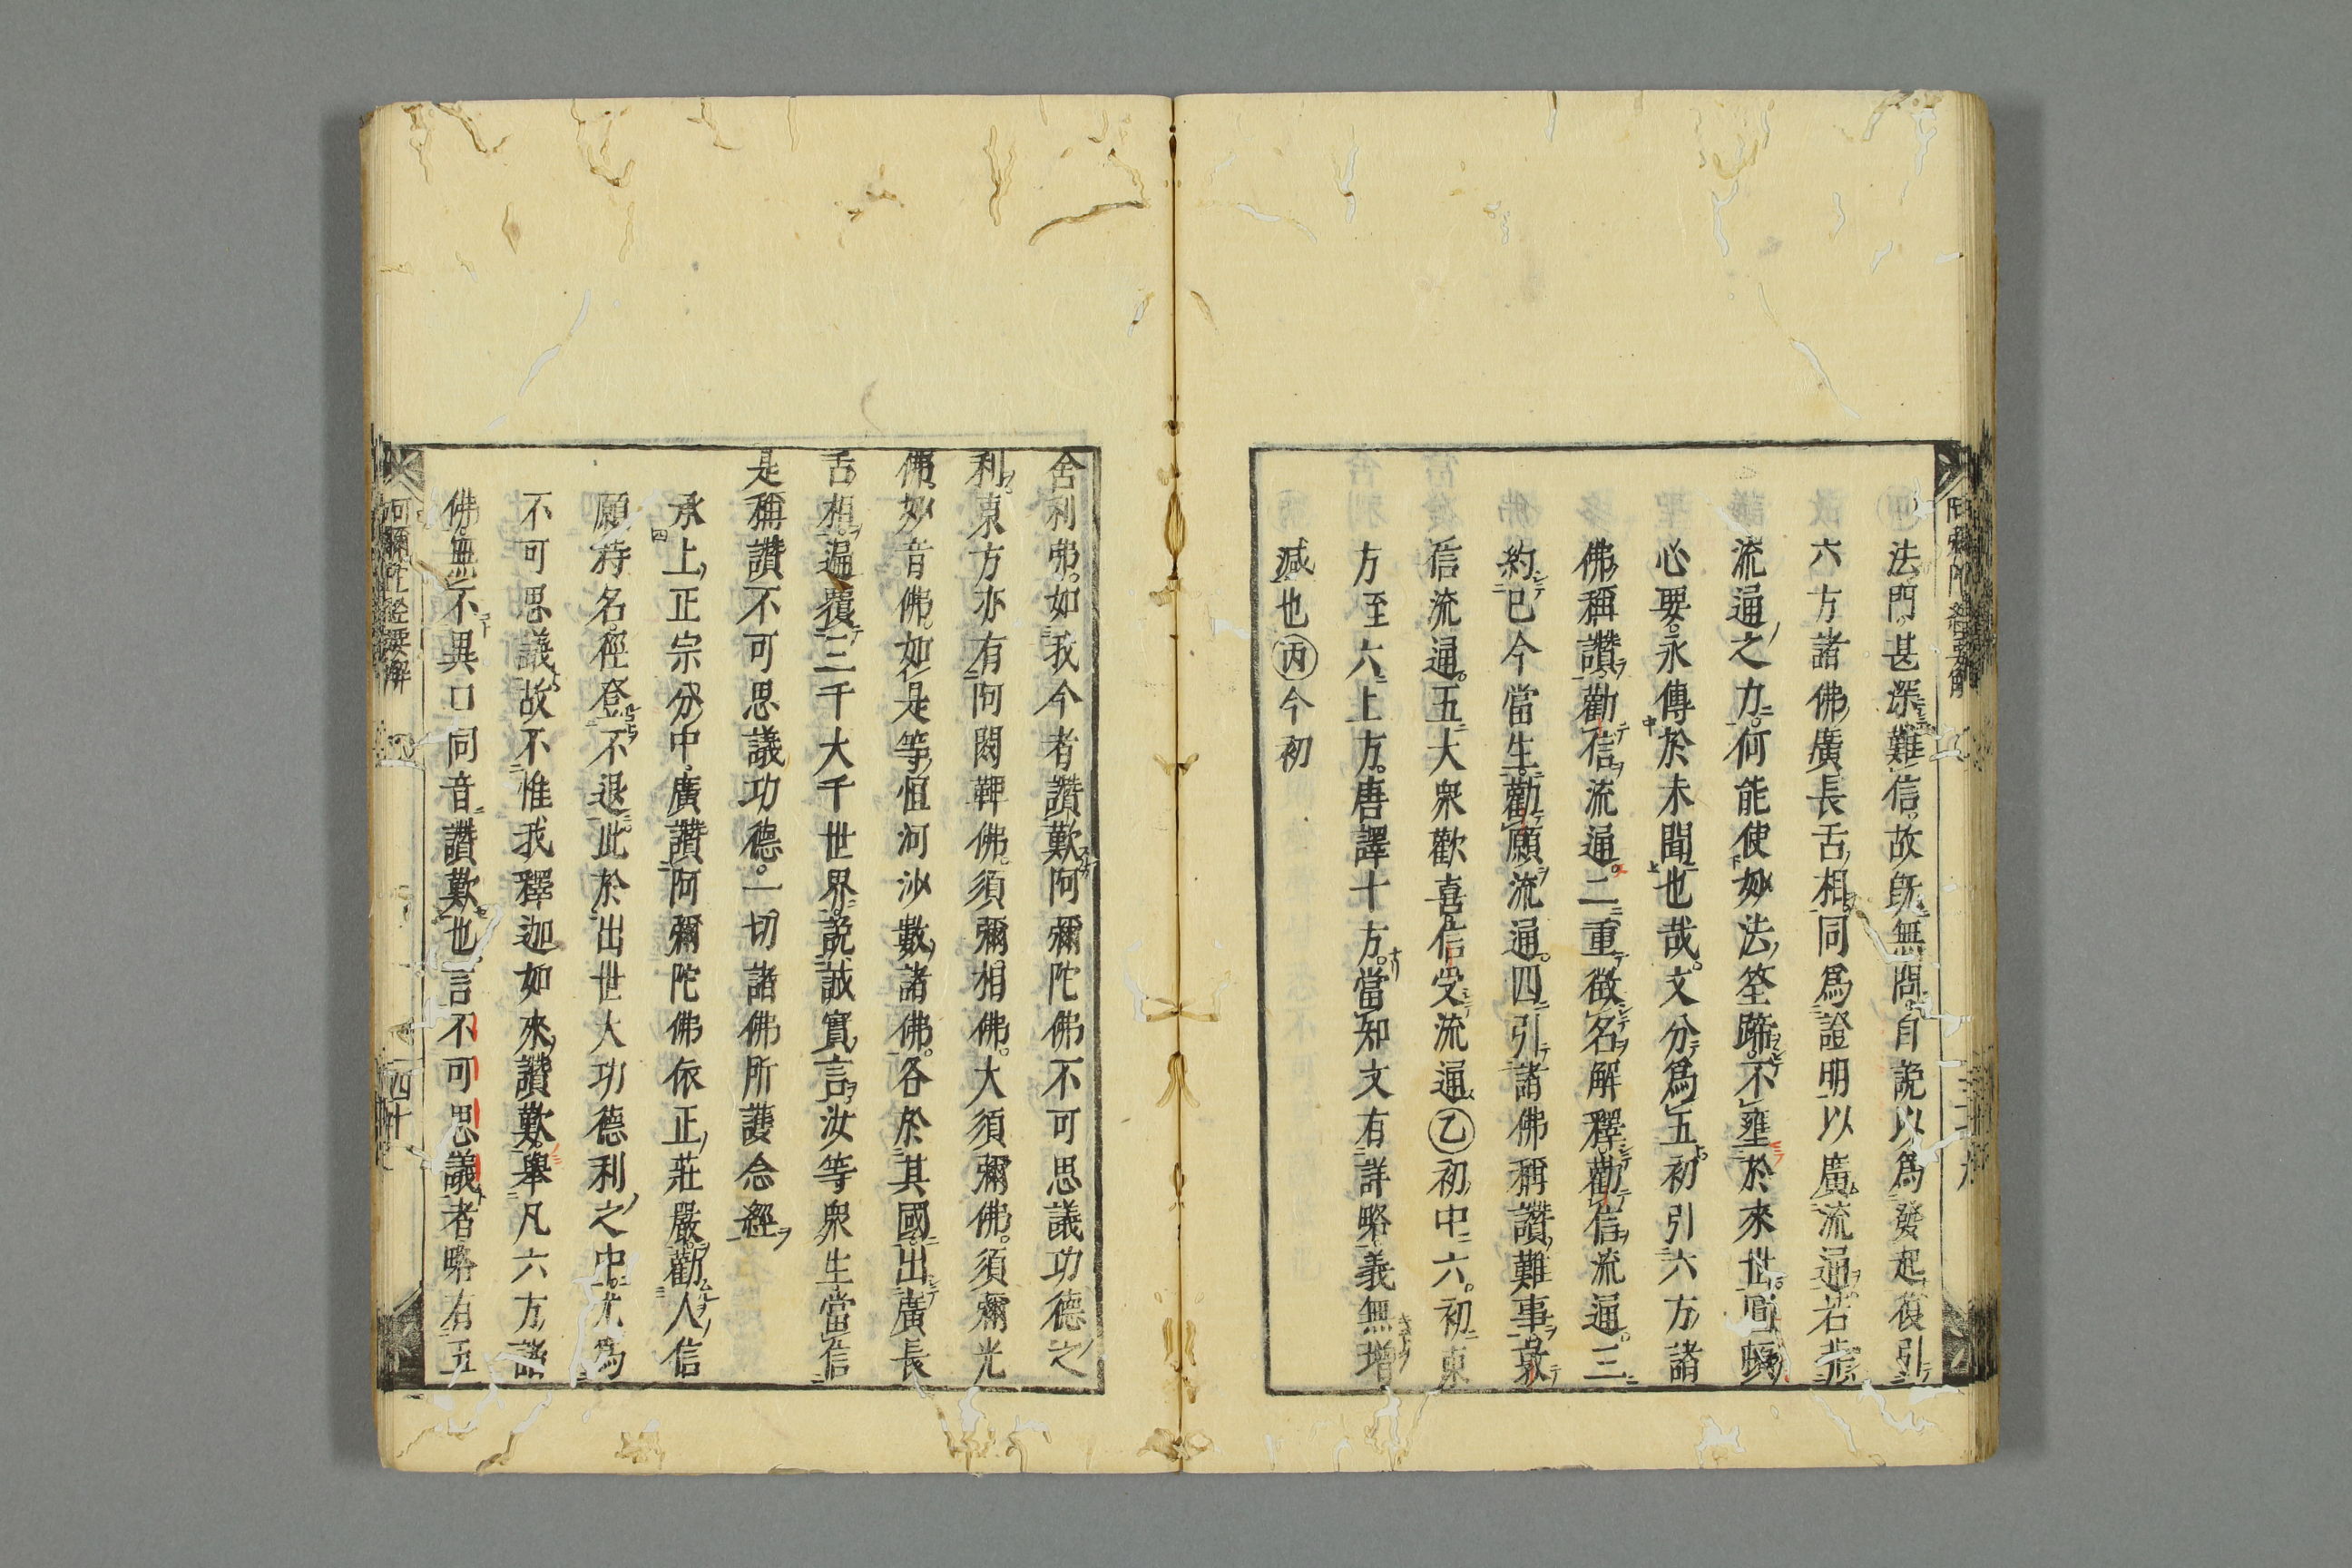 法門。甚深難信。故旣無問。自說以爲發起。復引
六方諸佛廣長舌相。同爲證明以廣流通。若非
流通之力。何能使妙法筌蹄。不壅於來世。圓
心要。永傳於未聞也哉。文分爲五。初引六方諸
佛稱讚。勸信流通。二重徵名解釋。勸信流通。三
約已今當生。勸願流通。四引諸佛稱讚難事。敦
信流通。五大衆歡喜信受流通㊁乙初中六。初東
方至六上方。唐譯十方。當知文有詳略義無增
減也丙今初
舍利弗。如我今者讚歎阿彌陀佛不可思議功德之
利。東方亦有阿閦鞞佛。須彌相佛。大須彌佛。須彌光
佛。妙音佛。如是等恒河沙數諸佛。各於其國。出廣長
舌相。遍覆三千大千世界。說誠實言。汝等衆生當信
是稱讚不可思議功德。一切諸佛所護念經
承上正宗分中。廣讚阿彌陀佛依正莊嚴。勸人信
願持名。徑登不退。此於出世大功德利之中。尤爲
不可思議。故不惟我釋迦如來讚歎。舉凡六方諸
佛。無不異口同音讚歎也。言不可思議者。略有五
阿彌陀經要解
四十